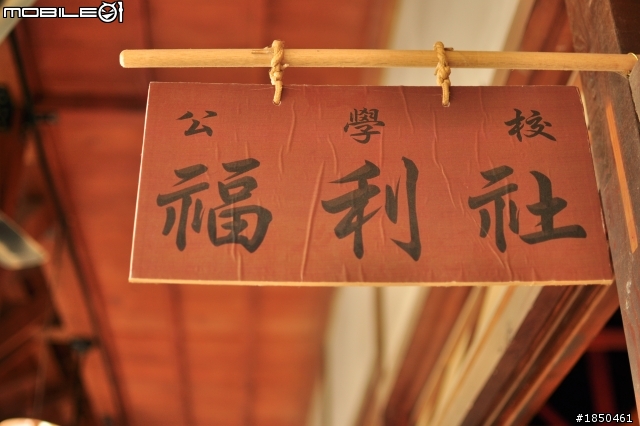 MOBILE01
公學校
福利社
#1850461